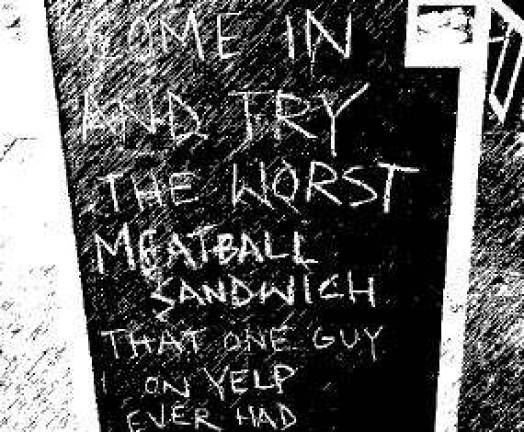 COME IN
AND TRY
THE WORST
MEATBALL
SANDWICH
THAT ONE GUY
ON YELP
EVER HAD